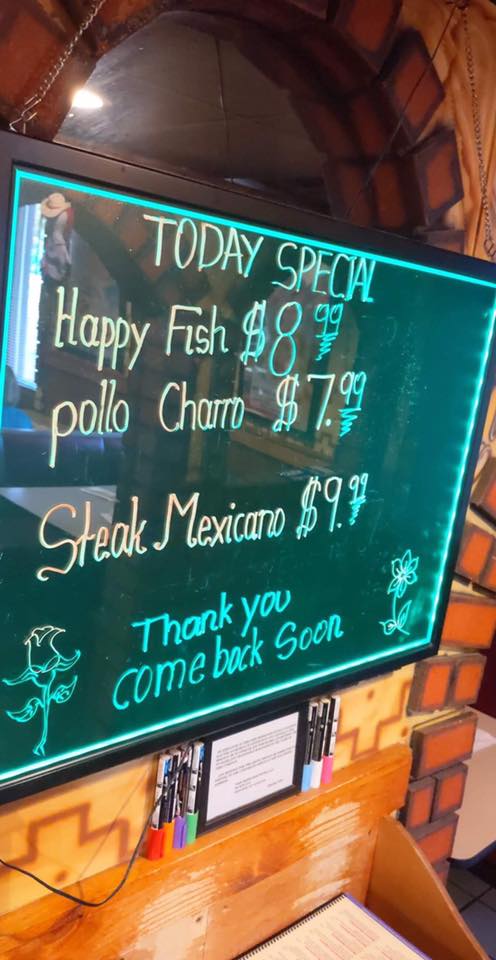 TODAY SPECIAL
Happy Fish $8.99
pollo Charro $7.99
Steak Mexicano $9.99
Thank you
come back Soon